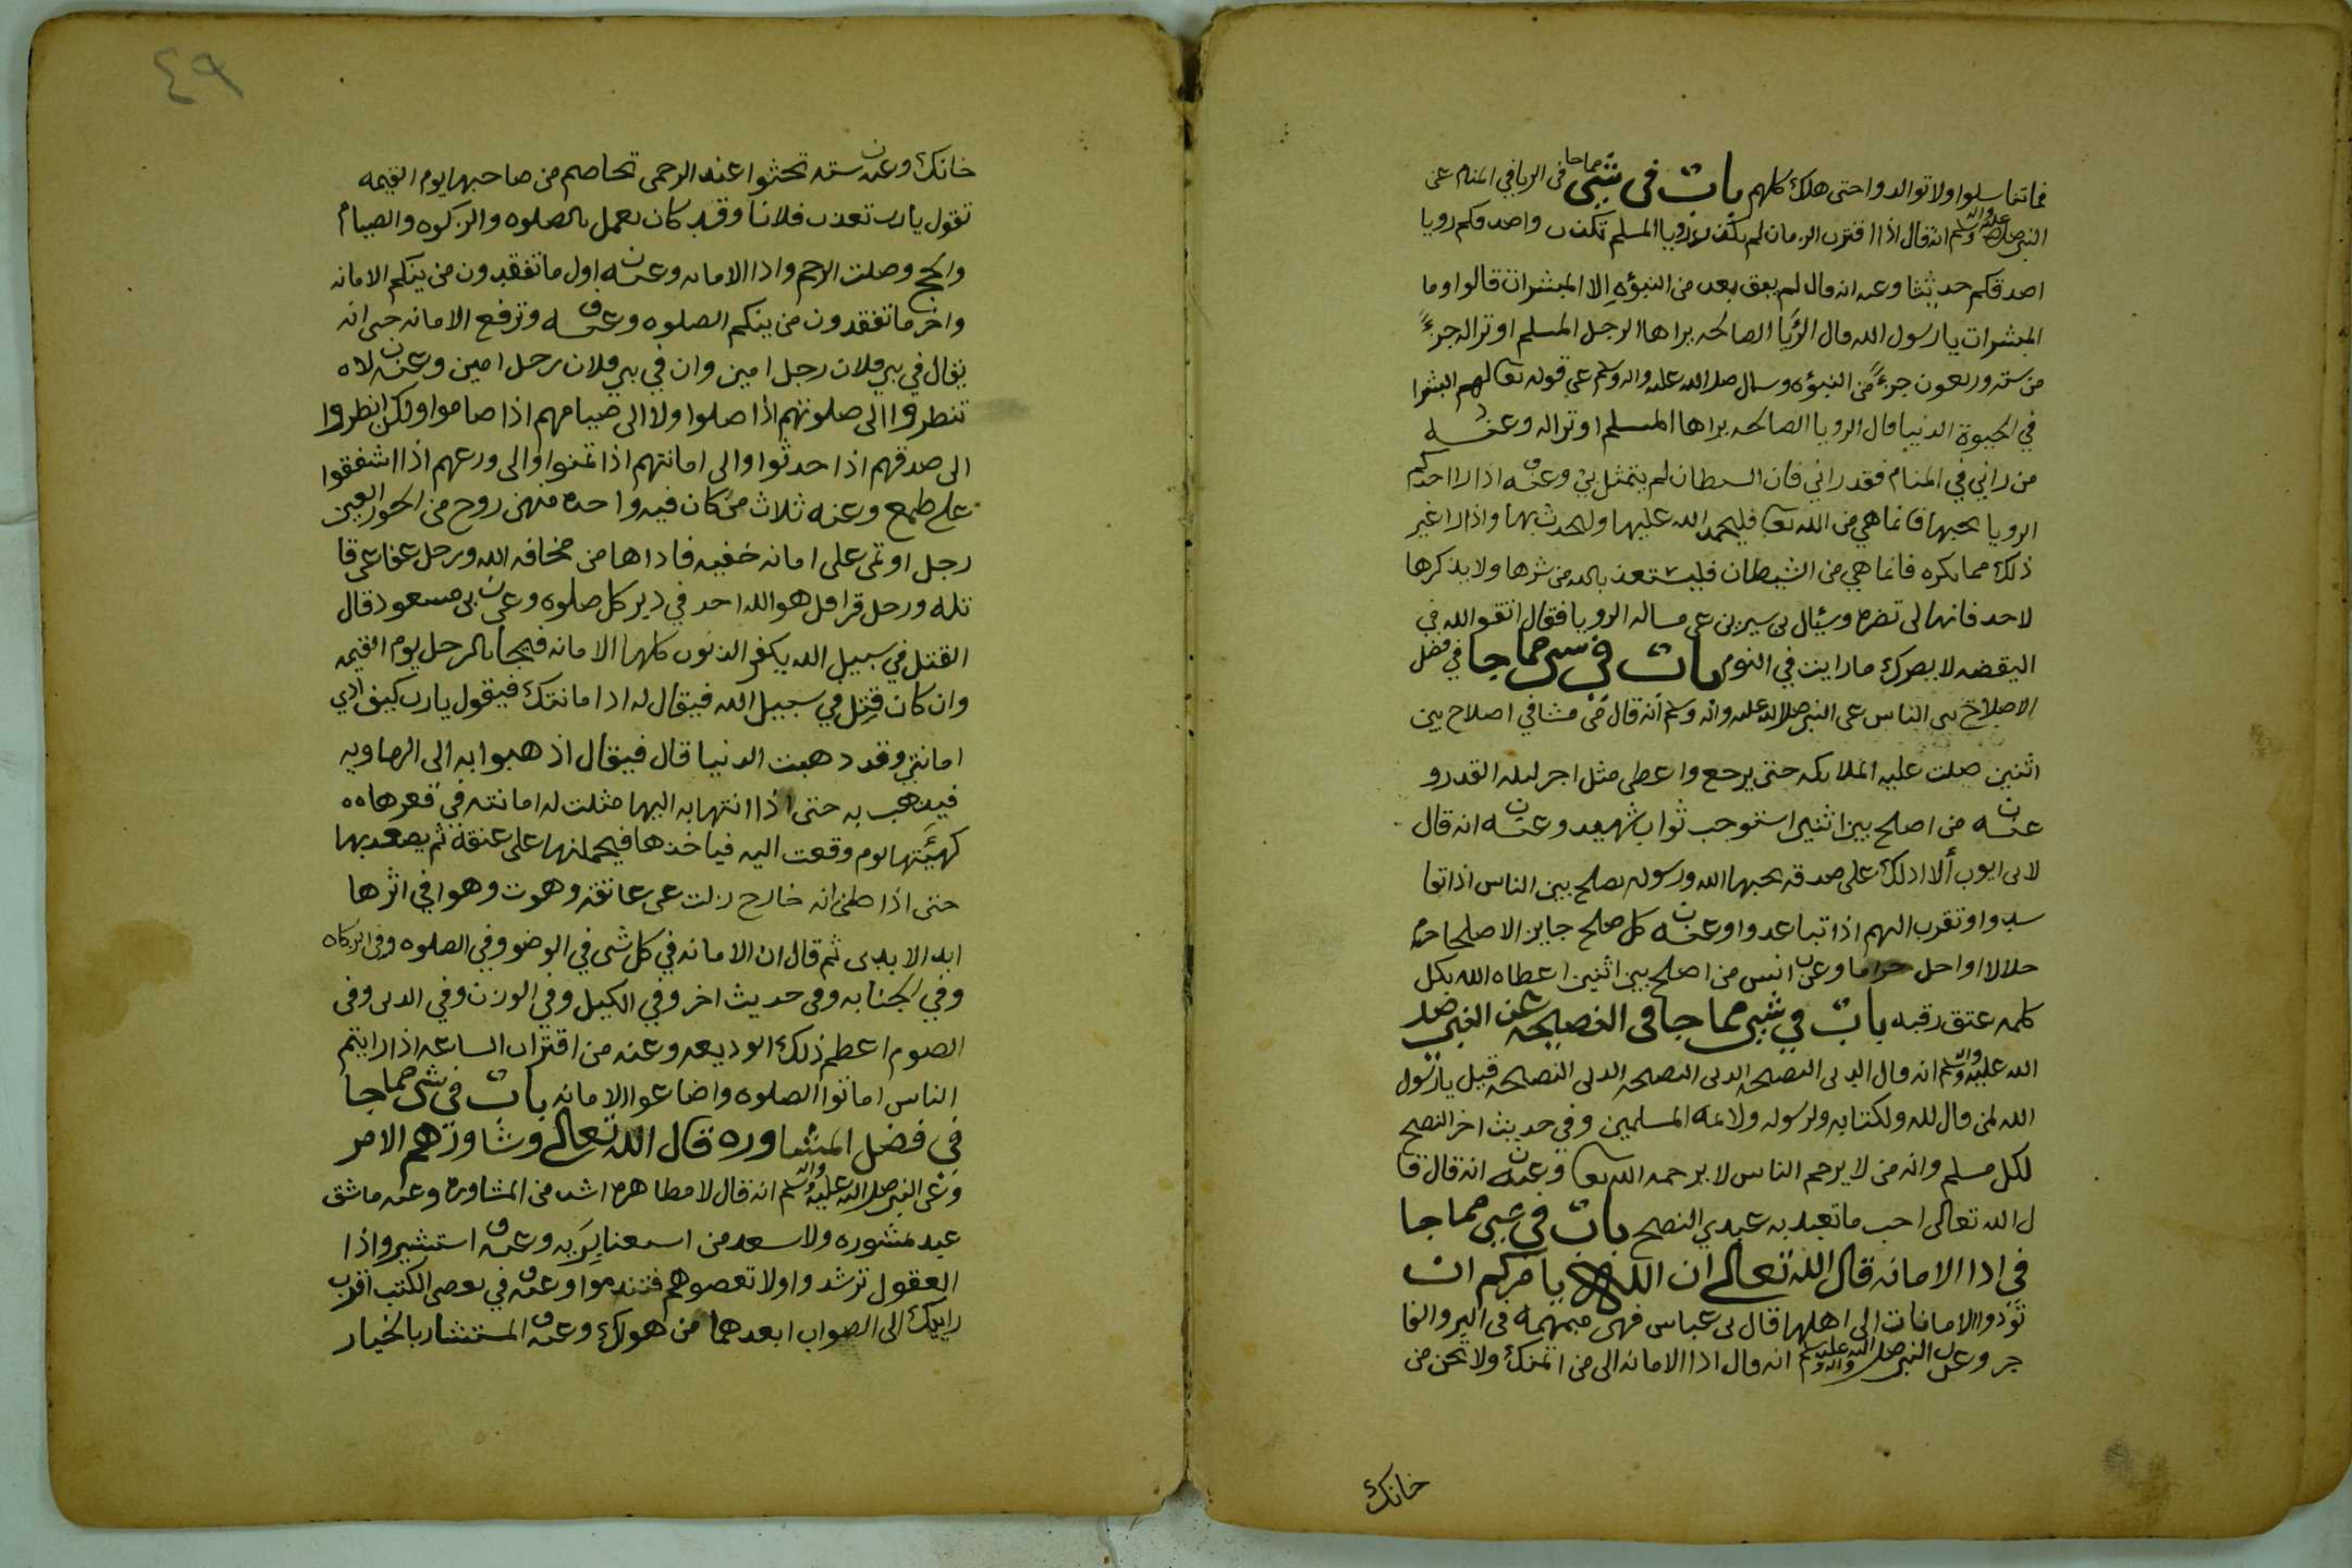 فما تناسلوا ولا توالدوا حتى هلك كلهم باب في شي مما جا في الريا في المنام عن
النبي صلى الله عليه واله وسلم انه قال اذا اقترب الزمان لم تكد رويا المسلم تكذب واصدقكم رويا
اصدقكم حديثا وعنه انه قال لم يبق بعدي من النبؤه الا المبشرات قالوا وما
المبشرات يا رسول الله قال الرُيَا الصالحه يراها الرجل المسلم او ترا له جزءً
من سته وربعون جزءً من النبؤه وسال صلى الله عليه واله وسلم عن قوله تعا لهم البشرا
في الحيوة الدنيا قال الرويا الصالحه يراها المسلم او ترا له وعنه
من راني في المنام فقد راني فان الشيطان لم يتمثل بي وعنه اذا را احدكم
الرويا يحبها فانما هي من الله تعا فليحمد الله عليها وليحدث بها واذا را غير
ذلك مما يكره فانما هي من الشيطان فليستعذ بالله من شرها ولا يذكرها
لاحد فانها لن تضره وسُئال بن سيرين عن مساله الرويا فقال اتقو الله في
اليقضه لا يضرك ما رايت في النوم باب في شي مما جا في فضل
الاصلاح بين الناس عن النبي صلى الله عليه واله وسلم انه قال من مشا في اصلاح بين
اثنين صلت عليه الملايكه حتى يرجع واعطي مثل اجر ليله القدر و
عنه من اصلح بين اثنين استوجب ثواب شهيد وعنه انه قال
لابي ايوب ألا ادلك على صدقه يحبها الله ورسوله تصلح بين الناس اذا تفا
سدوا وتقرب الهم اذا تباعدوا وعنه كل صلح جايز الا صلحا حرم
حلالا او احل حراما وعن انس من اصلح بين اثنين اعطاه الله بكل
كلمه عتق رقبه باب في شي مما جا في النصيحه عن النبي صلى
الله عليه واله وسلم انه قال الدين النصيحه الدين النصيحه الدين النصيحه قيل يا رسول
الله لمن قال لله ولكتابه ولرسوله ولائمه المسلمين وفي حديث اخر النصح
لكل مسلم وانه من لا يرحم الناس لا يرحمه الله تعا وعنه انه قال قا
ل الله تعالى احب ما تعبد به عبدي النصح باب في شي مما جا
في ادا الامانه قال الله تعالى ان الله يامركم ان
تؤدوا الامانات الى اهلها قال بن عباس فهي مبهمه في البر والفا
جر وعن النبي صلى الله عليه واله وسلم انه قال ادا الامانه الى من ائتمنك ولا تخن من
خانك
٤٩
خانك وعنه سته تحثوا عند الرحمن تخاصم من صاحبها يوم القيمه
تقول يا رب تعذب فلانا وقد كان يعمل بالصلوه والزكوه والصيام
والحج وصلت الرحم وادا الامانه وعنه اول ما تفقدون من ينكم الامانه
واخر ما تفقدون من ينكم الصلوه وعنه وترفع الامانه حتى انه
يقال في بني فلان رجل امين وان في بني فلان رجل امين وعنه لا ه
تنطروا الى صلوتهم اذا صلوا ولا الى صيامهم اذا صاموا ولكن انطروا
الى صدقهم اذا حدثوا والى امانتهم اذا تمنوا والى ورعهم اذا اشفقوا
على طمع وعنه ثلاث من كان فيه واحده منهن زوج من الحور العين
رجل اوتمن على امانه خفيه فاداها من مخافه الله ورجل عفا عن قا
تله ورجل قرا قل هو الله احد في دبر كل صلوه وعن بن مسعود قال
القتل في سبيل الله يكفر الذنوب كلها الا الامانه فيجا بالرجل يوم القيمه
وان كان قتل في سبيل الله فيقال له ادا امانتك فيقول يا رب كيف أدي
امانتي وقد دهبت الدنيا قال فيقال اذهبوا به الى الهاويه
فيذهب به حتى اذا انتها به اليها مثلت له امانته في قعرها ٥٥
كهيئتها يوم وقعت اليه فياخذها فيحملنها على عنقه ثم يصعد بها
حتى اذا ظن انه خارج زلت عن عاتقه وهوت وهوا في اثرها
ابد الابدين ثم قال ان الامانه في كل شي في الوضو وفي الصلوه وفي الزكاه
وفي الجنابه وفي حديث اخر وفي الكيل وفي الوزن وفي الدين وفي
الصوم اعطم ذلك الوديعه وعنه من اقتراب الساعه اذا رايتم
الناس اماتوا الصلوه واضاعوا الامانه باب في شي مما جا
في فضل المشاوره قال الله تعالى وشاورهم الامر
وعن النبي صلى الله عليه واله وسلم انه قال لا مظاهره اشد من المشاوره وعنه ما شق
عبد بمشوره ولا سعد من استغنا برَيه وعنه استشيروا ذا
العقول ترشدوا ولا تعصوهم فتندموا وعنه في بعض الكتب اقرب
رايك الى الصواب ابعدهما من هوك وعنه المستشار بالخيار